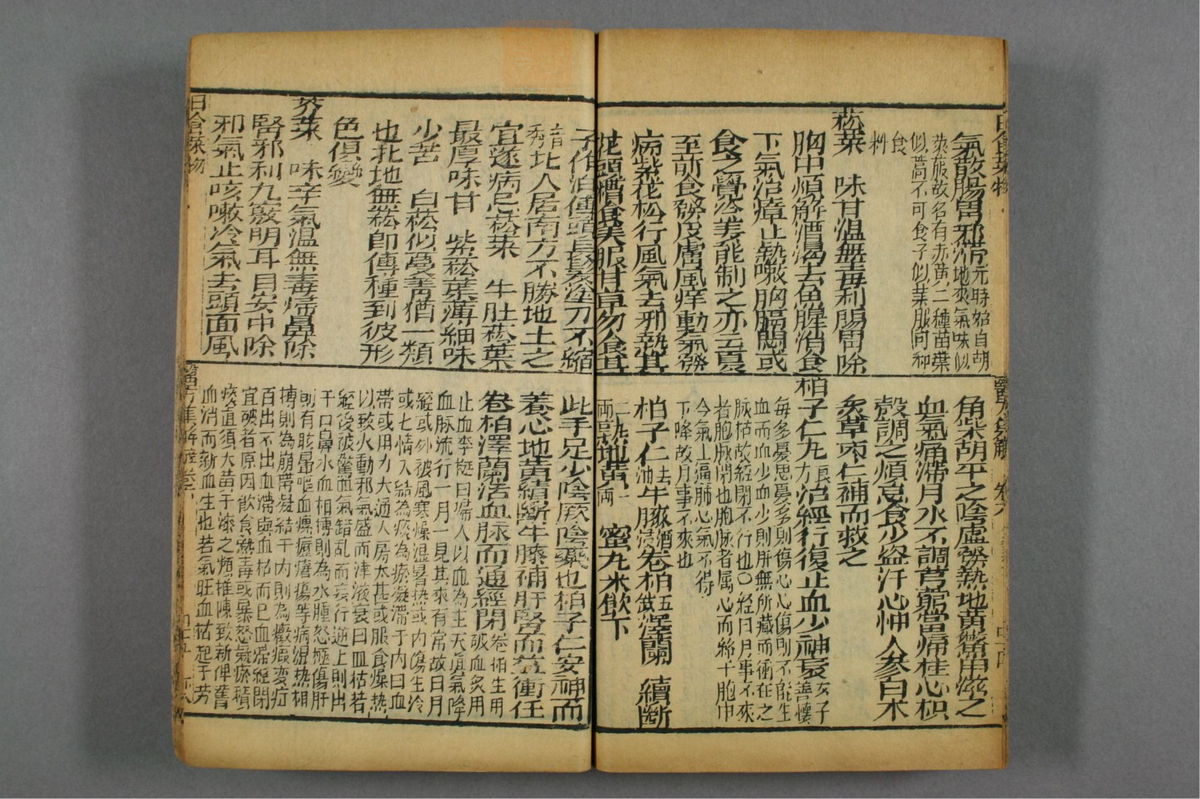 氣散腸胃邪熱元時始自胡
菾菜 食料
菘菜　味甘溫無毒利腸胃除
胸中煩解酒渴去魚腥消食
下氣治瘴止熱嗽胸膈悶或
食之覺冷姜能制之亦云夏
至前食發皮膚風痒動氣發
病紫花菘行風氣去邪熱其
花頭糟食美服甘草勿食其
角柴胡平之陰虛發熱地黃鱉甲滋之
血氣痛滯月水不調芎藭當歸桂心枳
殼調之煩忌食少盜汗心忡人參白朮
炙草棗仁補而救之
柏子仁丸良方治經行復止血少神衰女子善懷
每多憂思憂多則傷心心傷則不能生
血而血少血少則肝無所藏而衝任之
脉枯故經閉不行也○經曰月事不來
者胞脉閉也胞脉者屬心而絡于胞中
今氣上逼肺心氣不得
下降故月事不來也
柏子仁去油牛膝酒卷柏五錢澤蘭　續斷
二兩熟地黃一兩　蜜丸米飲下
子作油傅頭長髮塗刀不鏽
北人居南方不勝地土之
宜遂病忌菘菜　牛肚菘葉
最厚味甘　紫菘葉薄細味
少苦　白菘似蔓菁猶一類
也北地無菘卽傳種到彼形
色俱變
芥菜　味辛氣溫無毒歸鼻除
腎邪利九竅明耳目安中除
邪氣止咳嗽冷氣去頭面風
此手足少陰厥陰藥也柏子仁安神而
養心地黃續斷牛膝補肝腎而益衝任
卷柏澤蘭活血脉而通經閉卷柏生用破血炙用
止血李梴曰婦人以血為主天眞氣降
血脉流行一月一見其來有常故曰月
經或外被風寒燥濕暑熱或內傷生冷
或七情入結為痰為瘀凝滯于內曰血
滯或用力太過入房太甚或服食燥熱
以致火動邪氣盛而津液衰曰血枯若
經後被驚血氣錯亂而妄行逆上則出
于口鼻水血相搏則為水腫怒極傷肝
則有眩暈嘔血瘰癧瘡瘍等病濕熱相
搏則為崩帶凝結于內則為癥瘕變症
百出不出血滯與血枯而已血滯經閉
宜破者原因飲食熱毒或暴怒氣瘀積
痰直須大黃干漆之類推陳致新俾舊
血消而新血生也若氣旺血枯起于勞